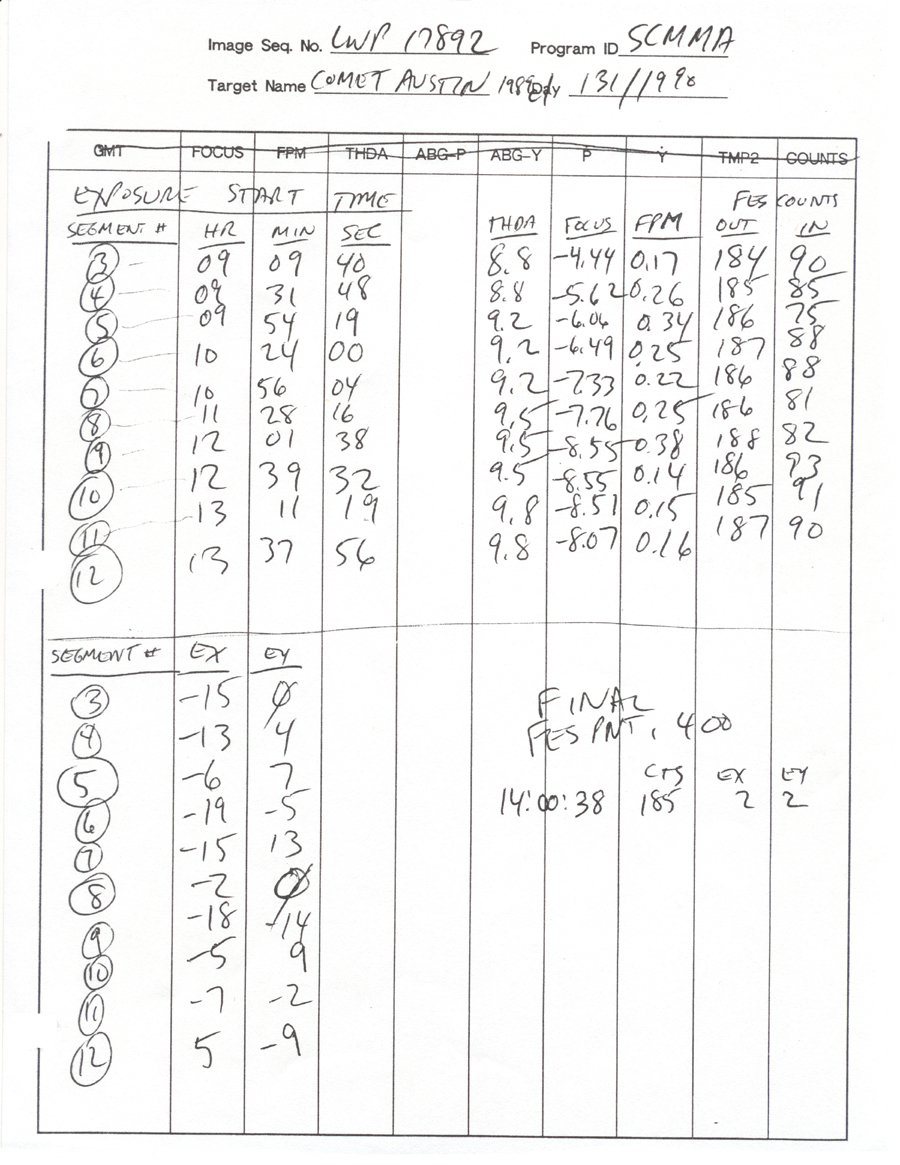 Image Seq. No. LWP 17892 Program ID SCMMA
Target Name COMET AUSTIN Day 131/1990
GMT FOCUS FPM THDA ABG-P ABG-Y P Y TMP2 COUNTS
EXPOSURE START TIME FES COUNTS
SEGMENT # HR MIN SEC THDA FOCUS FPM OUT IN
3 09 09 40 8.8 -4.44 0.17 184 90
4 09 31 48 8.8 -5.62 0.26 185 85
5 09 54 19 9.2 -6.06 0.34 186 75
6 10 24 00 9.2 -6.49 0.25 187 88
7 10 56 04 9.2 -7.33 0.22 186 88
8 11 28 16 9.5 -7.76 0.25 186 81
9 12 01 38 9.5 -8.55 0.38 188 82
10 12 39 32 9.5 -8.55 0.14 186 93
11 13 11 19 9.8 -8.51 0.15 185 91
12 13 37 56 9.8 -8.07 0.16 187 90
SEGMENT # EX EY
3 -15 0
4 -13 4
5 -6 7
6 -19 -5
7 -15 13
8 -2 0
9 -18 -14
10 -5 9
11 -7 -2
12 5 -9
FINAL
FES PNT. 400
CTS EX EY
14:00:38 185 2 2